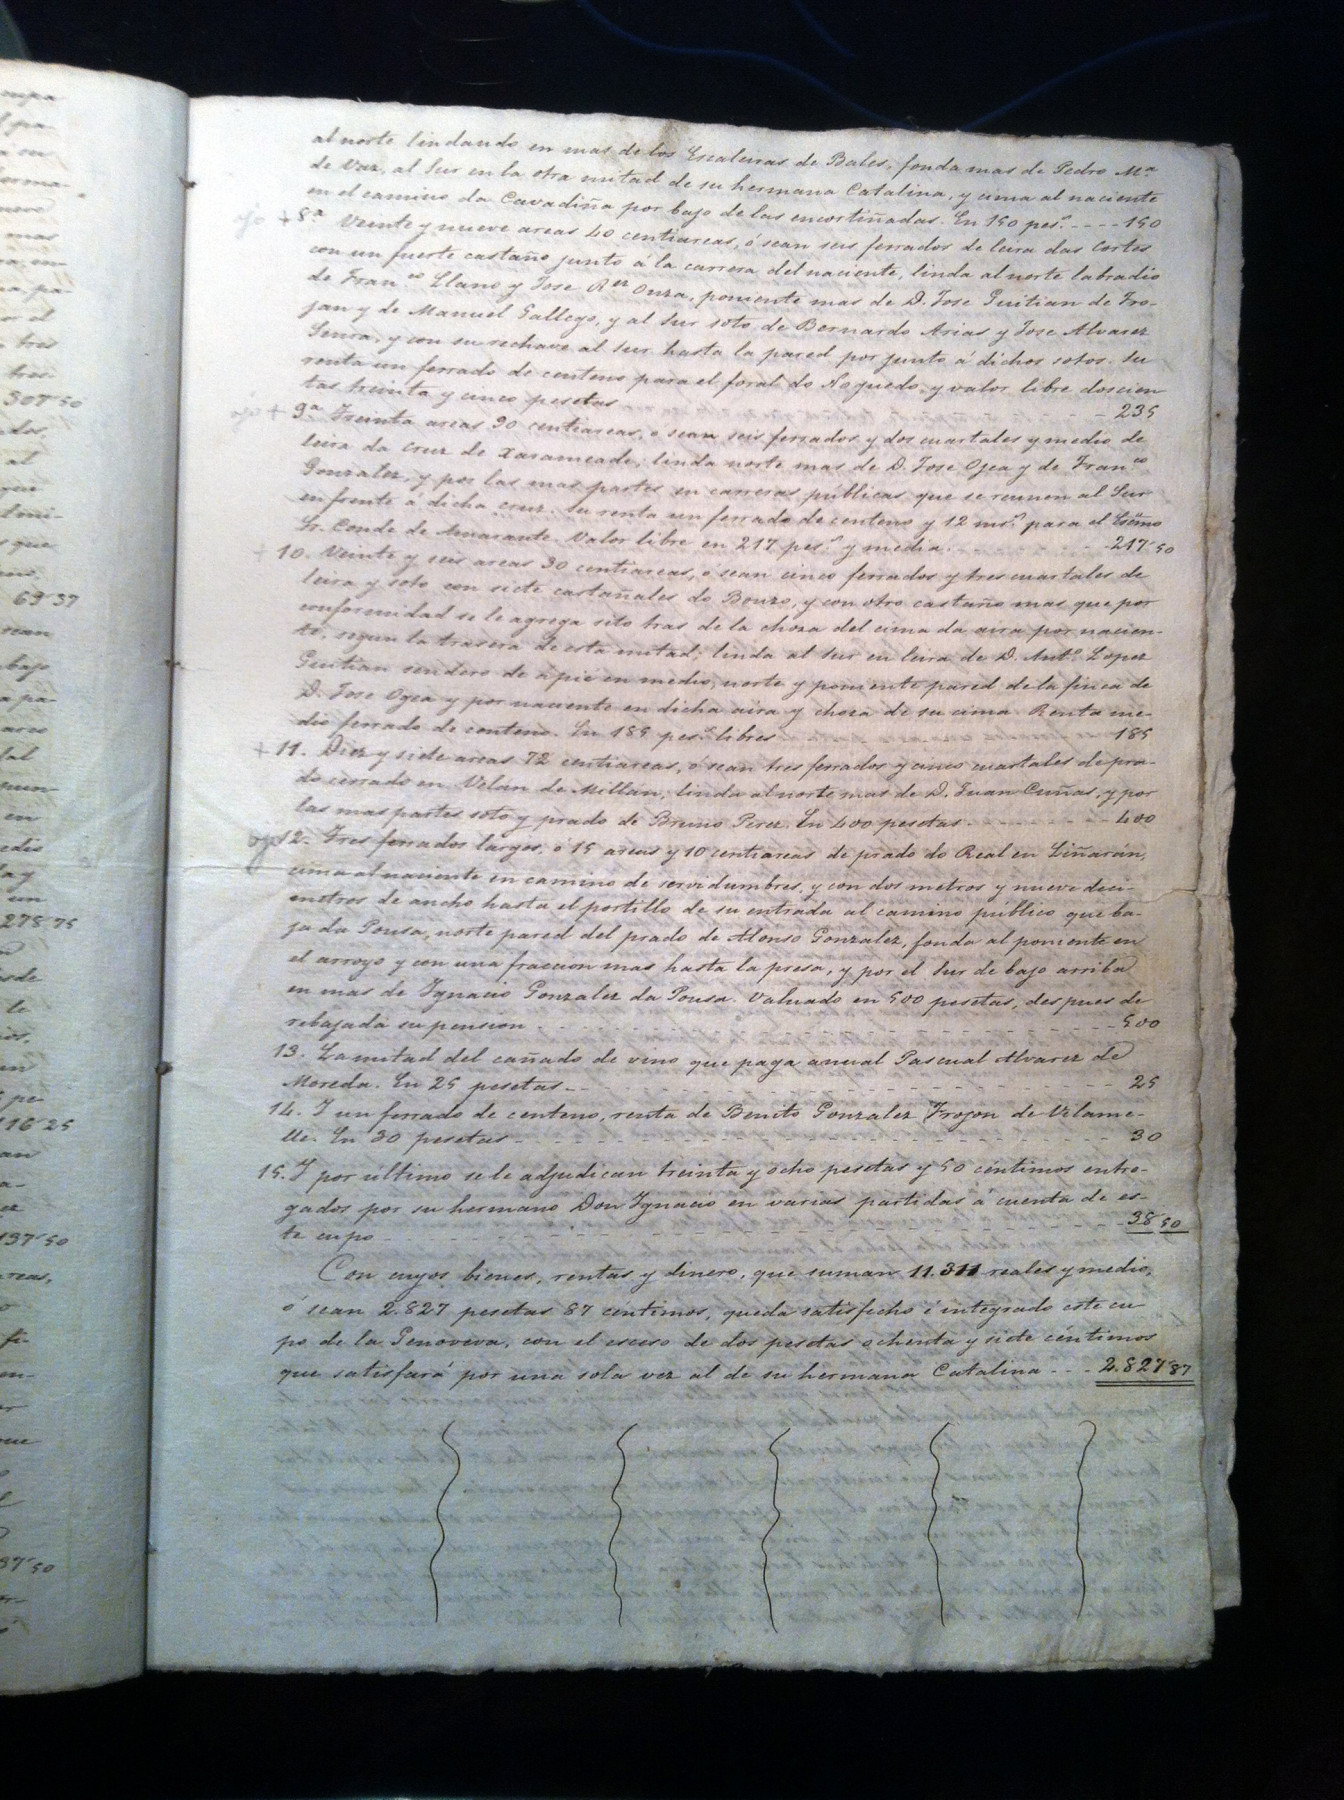 al norte lindando en mas de los Escaleiras de Bales, fonda mas de Pedro Mª
de Vaz, al Sur en la otra mitad de su hermana Catalina, y cima al naciente
en el camino da Cavadiña por bajo de las encortiñadas. En 150 pes.s - - - - 150
ojo + 8ª Veinte y nueve areas 40 centiareas, ó sean seis ferrados de leira das Cortes
con un fuerte castaño junto á la carrera del naciente, linda al norte labradio
de Franco Llano y Jose Rez Onza, poniente mas de D. Jose Guitian de Fro-
jan y de Manuel Gallego, y al Sur soto de Bernardo Arias y Jose Alvarez
Seura, y con su rechave al Sur hasta la pared por junto á dichos sotos. Su
renta un ferrado de centeno para el foral do Noguedo, y valor libre doscien
tas treinta y cinco pesetas - - 235
ojo + 9ª Treinta areas 90 centiareas, ó sean seis ferrados y dos cuartales y medio de
leira da Cruz de Xarameade; linda norte mas de D. Jose Ogea y de Franco
Gonzalez, y por las mas partes en carreras públicas que se reunen al Sur
enfrente á dicha cruz. Su renta un ferrado de centeno y 12 mrs para el Escmo
Sr. Conde de Amarante. Valor libre en 217 pes.s y media. - - 217'50
+ 10. Veinte y seis areas 30 centiareas, ó sean cinco ferrados y tres cuartales de
leira y soto con siete castañales do Bouzo, y con otro castaño mas que por
conformidad se le agrega sito tras de la choza del cima da aira por nacien-
te, segun la trasera de esta mitad; linda al Sur en leira de D. Antº Lopez
Guitian sendero de á pie en medio, norte y poniente pared de la finca de
D. Jose Ogea y por naciente en dicha aira y choza de su cima Renta me-
dio ferrado de centeno. En 185 pes.s libres - - 185
+ 11. Diez y siete areas 72 centiareas, ó sean tres ferrados y cinco cuartales de pra-
do cerrado en Velán de Millán; linda al norte mas de D. Juan Cuñas, y por
las mas partes soto y prado de Bruno Perez. En 400 pesetas. - - - - 400
ojo 12. Tres ferrados largos, ó 15 areas y 10 centiareas de prado do Real en Liñarán,
cima al naciente en camino de servidumbres, y con dos metros y nueve deci-
metros de ancho hasta el portillo de su entrada al camino público que ba-
ja da Pousa, norte pared del prado de Alonso Gonzalez, fonda al poniente en
el arroyo y con una fraccion mas hasta la presa, y por el Sur de bajo arriba
en mas de Ygnacio Gonzalez da Pousa. Valuado en 500 pesetas, despues de
rebajada su pension - - - - 500
13. La mitad del cañado de vino que paga anual Pascual Alvarez de
Moreda. En 25 pesetas - - - - 25
14. Y un ferrado de centeno, renta de Benito Gonzalez Frojon de Vilame-
lle. En 30 pesetas - - - - 30
15. Y por último se le adjudican treinta y ocho pesetas y 50 céntimos entre-
gados por su hermano Don Ygnacio en varias partidas á cuenta de es-
te cupo - - - - 38'50
Con cuyos bienes, rentas y dinero, que suman 11.311 reales y medio,
ó sean 2.827 pesetas 87 céntimos, queda satisfecho é integrado este cu
po de la Genoveva, con el esceso de dos pesetas ochenta y siete céntimos
que satisfará por una sola vez al de su hermana Catalina - - - 2.827'87